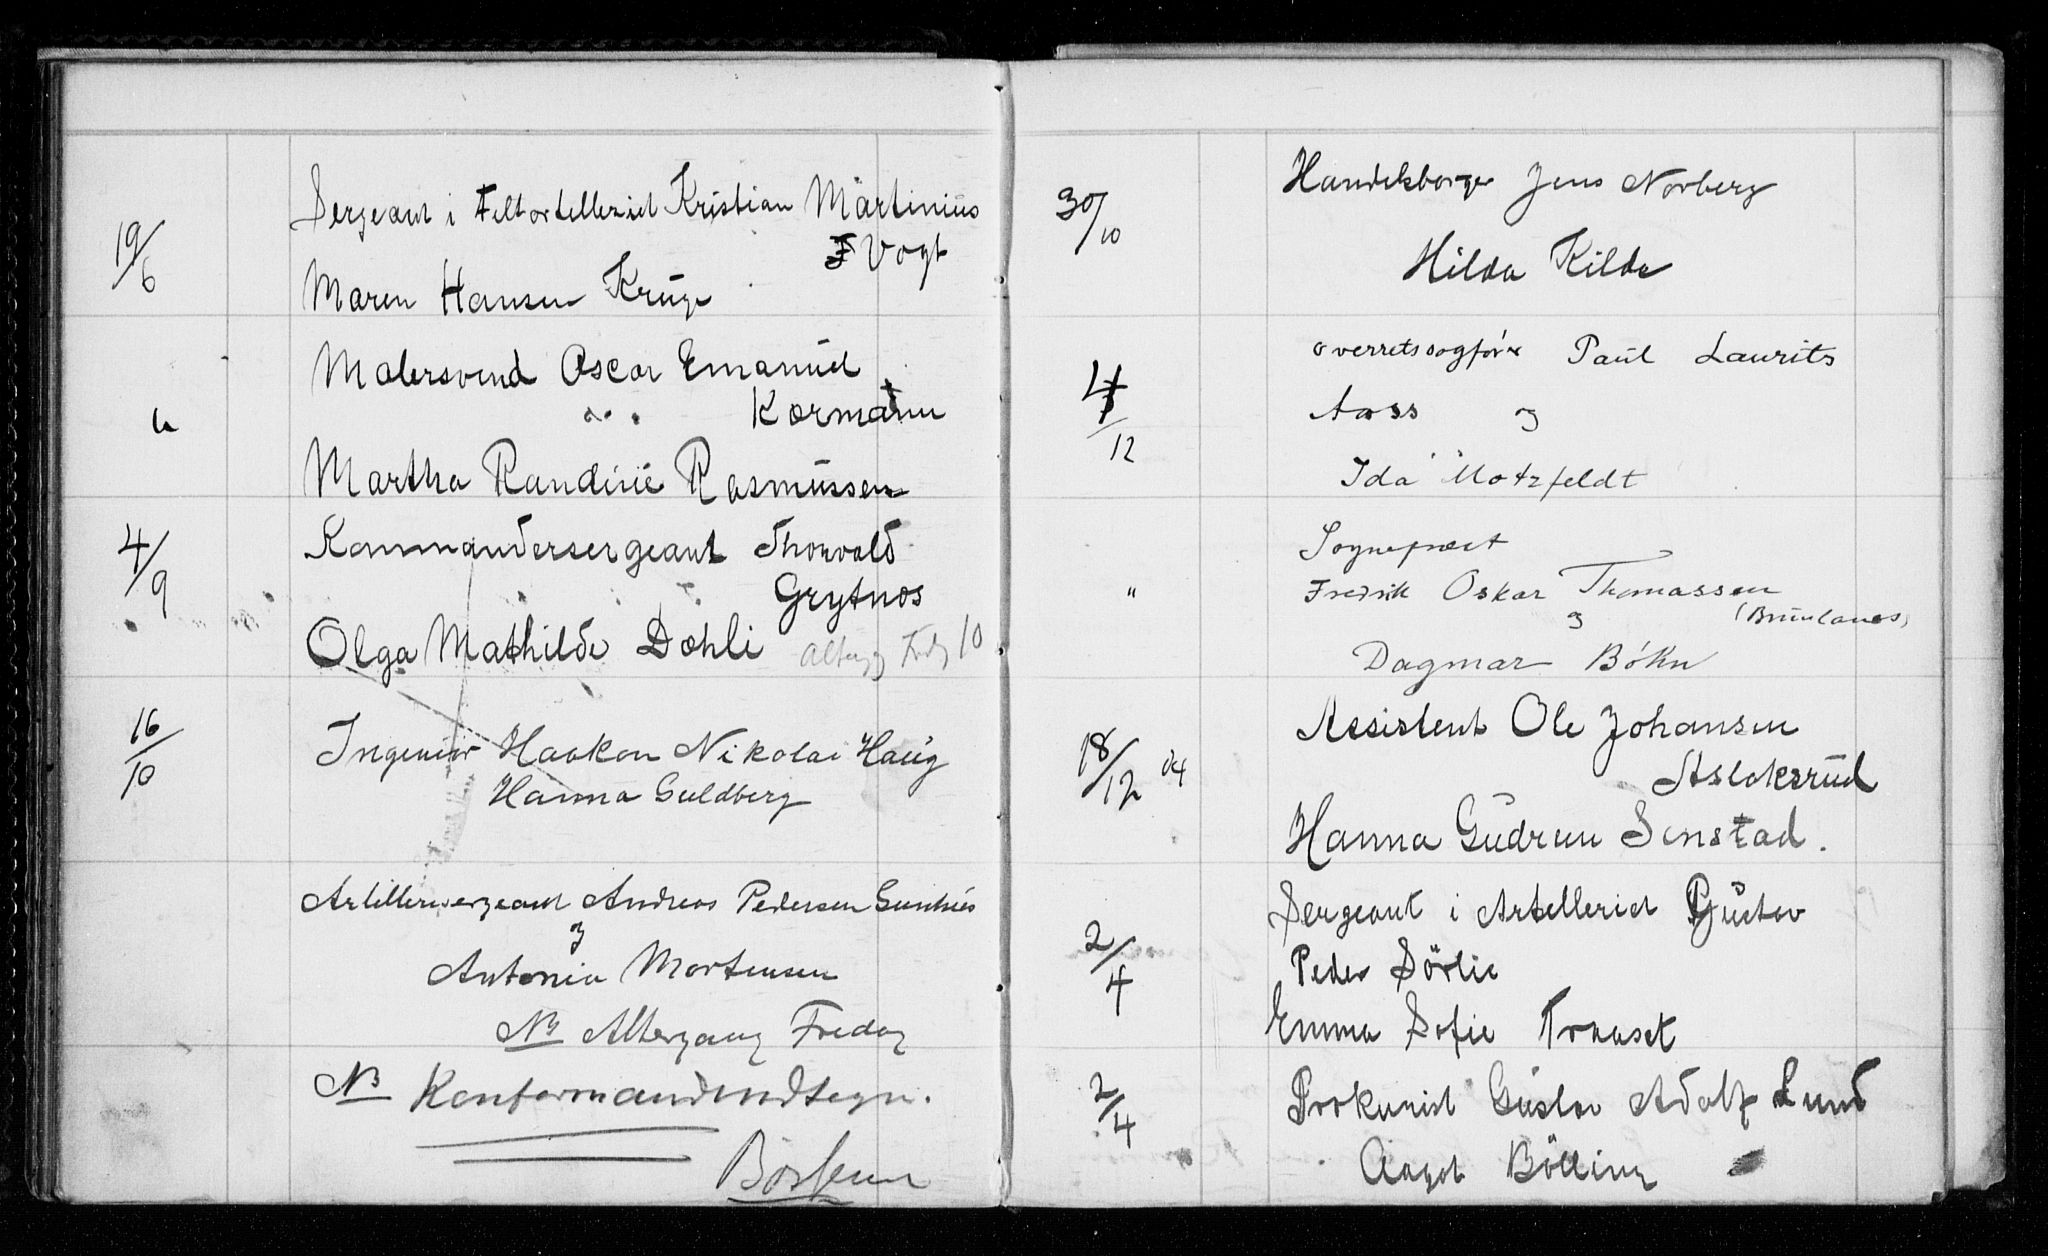 19/6
Sergeant i Feltartilleriet Kristian Martinius
Vogt
Maren Hansen Kruge
Malersvend Oscar Emanuel
"
Kormann
Martha Randine Rasmussen
4/9
Kommandersergeant Thorvald
Grytnes
Olga Mathilde Dæhli 10
16/10
Ingeniør Haakon Nikolai Haug
Hanna Guldberg
Artillerisergeant Andreas Pedersen
og
Antonia Mortensen
NB Altergang Fredag
NB Konfirmandindtegn.
30/10
Handelsborger Jens Norberg
Hilda Kilde
Overretssagfører Paul Laurits
4/12
Aass og
Ida Motzfeldt
Sogneprest
" Fredrik Oskar Thomassen
og (Brunlanes)
Dagmar Bøhn
Assistent Ole Johansen
18/12 04
Aslaksrud
Hanna Gudrun Senstad.
Sergeant i Artilleriet Gustav
2/4
Peder Sörlie
Emma Sofie Traaset
2/4
Prokurist Gustav Adolf Lund
Aagot Bölling